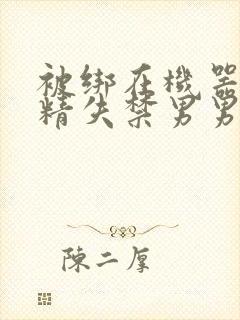 被绑在機器
精失禁男男
陳二厚